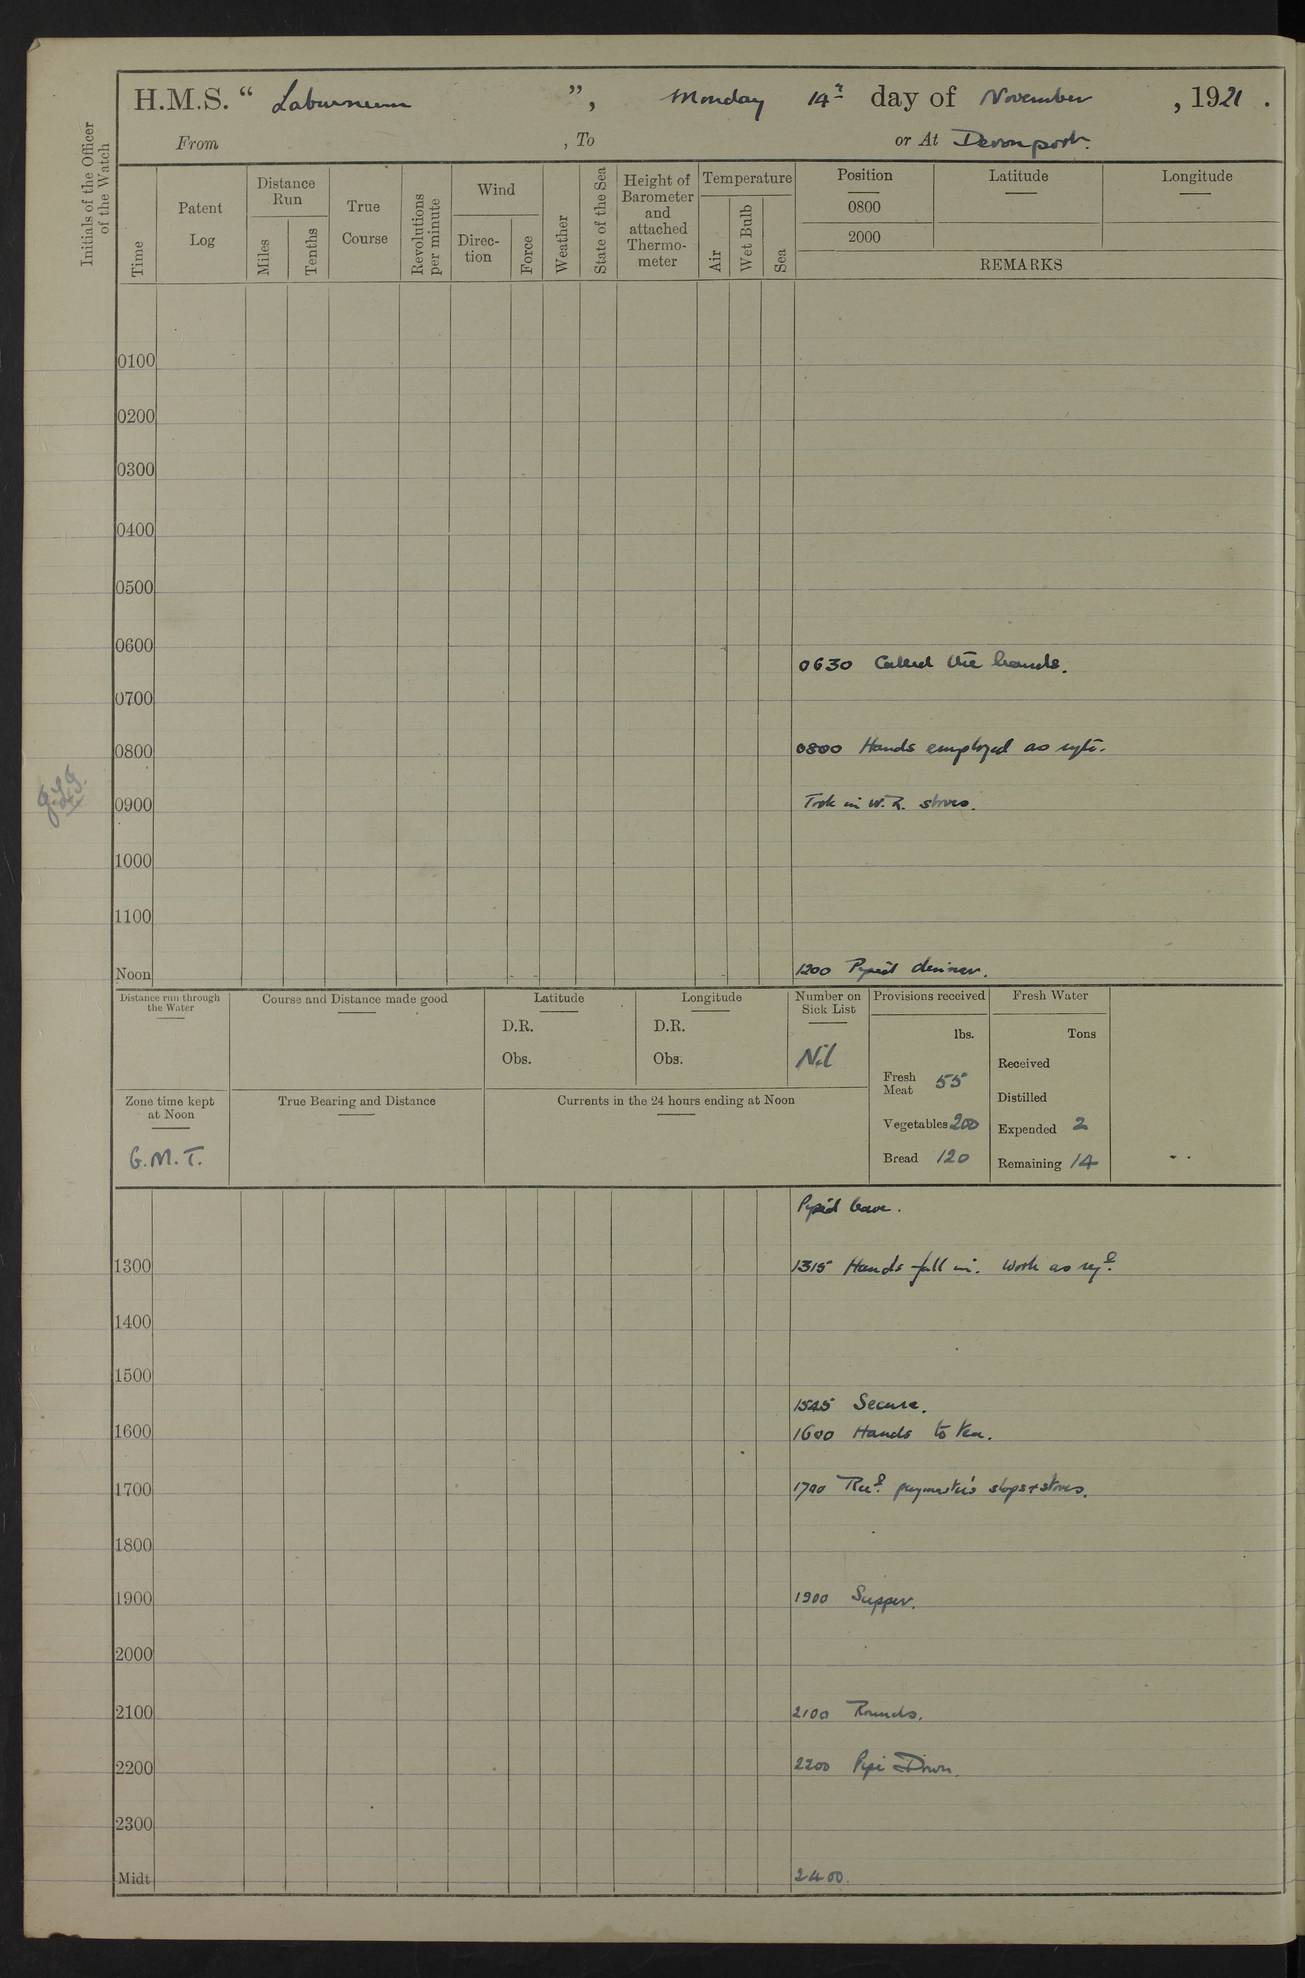 H.M.S. “ Laburnum ”, Monday 14th day of November , 1921 .
From , To or At Devonport.
Initials of the Officer of the Watch
Time
Patent Log
Distance Run
Miles
Tenths
True Course
Revolutions per minute
Wind
Direction
Force
Weather
State of the Sea
Height of Barometer and attached Thermometer
Temperature
Air
Wet Bulb
Sea
Position Latitude Longitude
0800
2000
REMARKS
0100
0200
0300
0400
0500
0600
0630 Called the hands.
0700
0800 0800 Hands employed as
0900 Took in W.R. stores.
1000
1100
Noon 1200 Piped dinner.
Distance run through the Water
Course and Distance made good
Latitude
D.R.
Obs.
Longitude
D.R.
Obs.
Number on Sick List
Nil
Provisions received
lbs.
Fresh Meat 55
Vegetables 200
Bread 120
Fresh Water
Tons
Received
Distilled
Expended 2
Remaining 14
Zone time kept at Noon
G.M.T.
True Bearing and Distance
Currents in the 24 hours ending at Noon
Piped leave.
1300 1315 Hands fall in. Work as
1400
1500
1545 Secure.
1600 1600 Hands to tea.
1700 1700 Recd. paymaster's slops + stores.
1800
1900 1900 Supper.
2000
2100 2100 Rounds.
2200 2200 Pipe Down.
2300
Midt 2400.